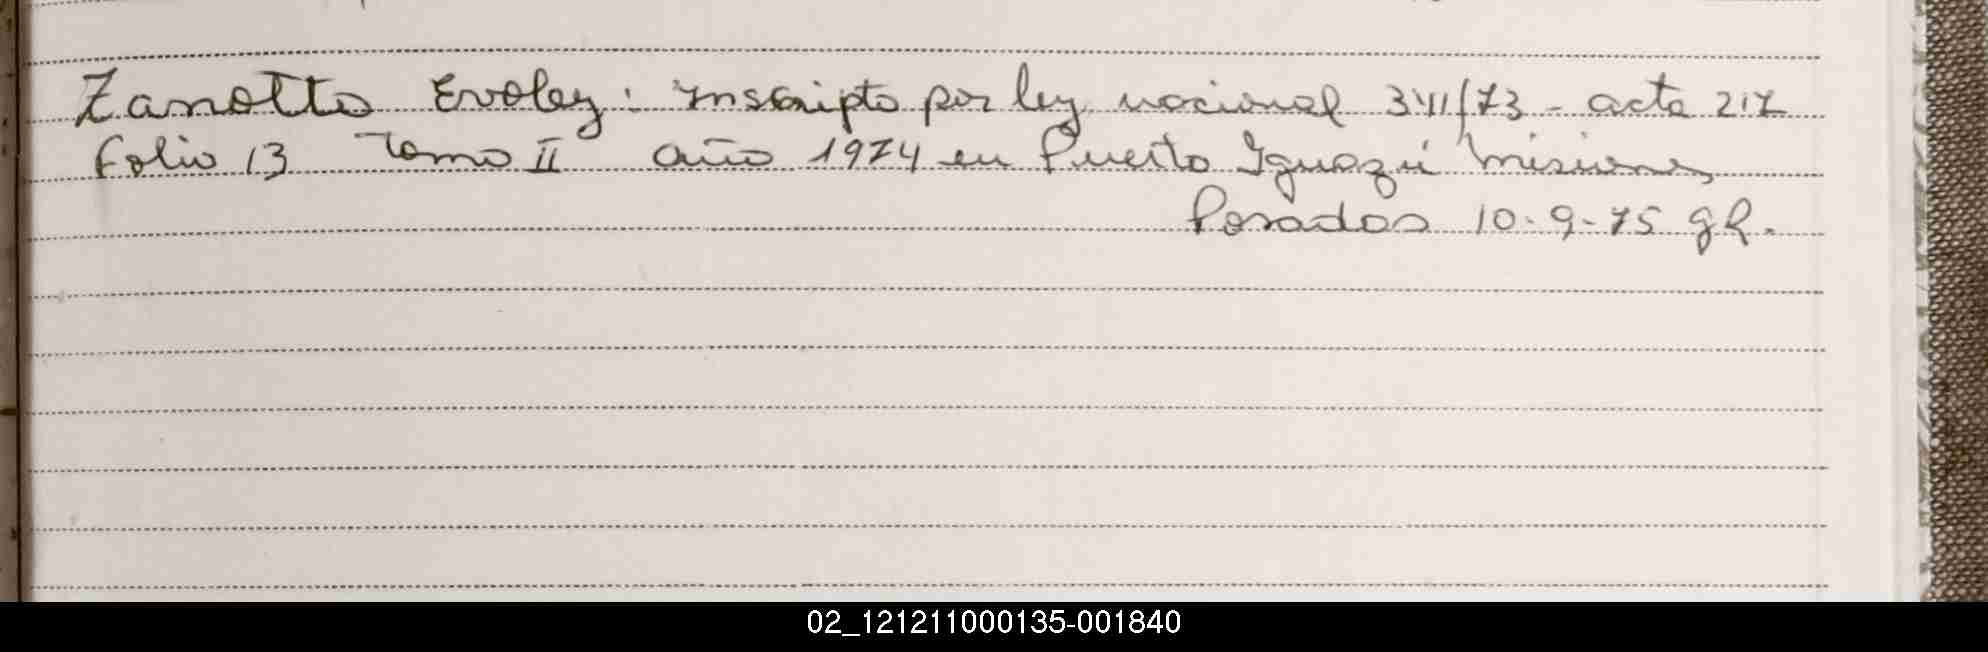 Zanotto Evoley: Inscripto por ley nacional 3411/73 - acta 217
folio 13 Tomo II año 1974 en Puerto Iguazú Misiones
Posadas 10-9-75 gR.
02_121211000135-001840